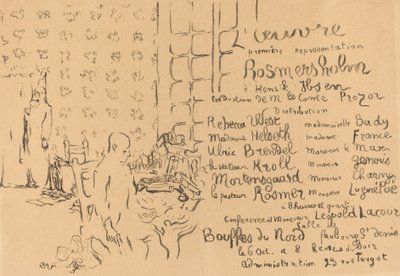 L'œuvre
première représentation
Rosmersholm
d'Henrik Ibsen
traduction de M. le Comte Prozor
Distribution
Rebecca West mademoiselle Bady
Madame Helseth madame France
Ulric Brendel Monsieur de Max
le recteur Kroll Monsieur
Mortensgaard Monsieur Charny
le pasteur Rosmer Monsieur Lugné Poe
à 8 heures et quart
Conférence de Monsieur Léopold Lacour
Salle des
Bouffes du Nord faubourg St Denis
le 6 Oct. à 8 heures du soir
administration 23 rue Turgot